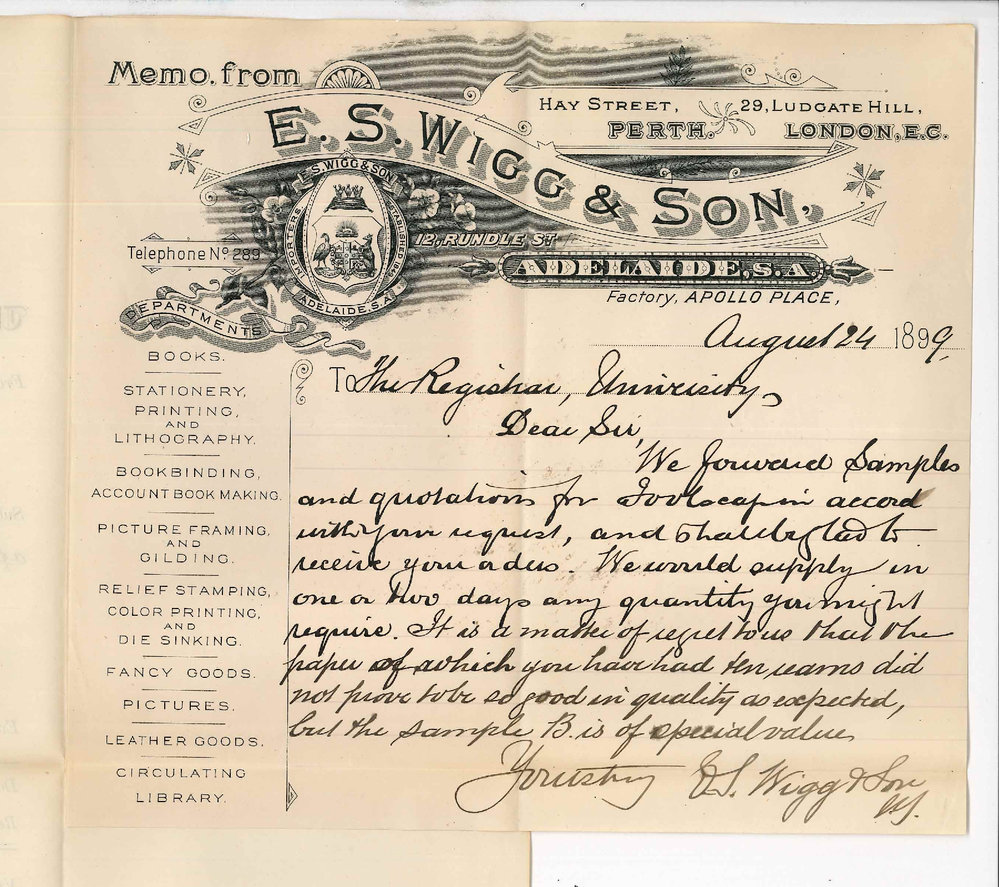 Memo. from
E. S. WIGG & SON,
HAY STREET, PERTH.
29, LUDGATE HILL, LONDON, E.C.
E. S. WIGG & SON
IMPORTERS
ESTABLISHED
ADELAIDE. S.A.
12, RUNDLE ST
ADELAIDE, S.A.
Factory, APOLLO PLACE,
Telephone No 289
DEPARTMENTS
BOOKS.
STATIONERY,
PRINTING,
AND
LITHOGRAPHY.
BOOKBINDING,
ACCOUNT BOOK MAKING.
PICTURE FRAMING,
AND
GILDING.
RELIEF STAMPING,
COLOR PRINTING,
AND
DIE SINKING.
FANCY GOODS.
PICTURES.
LEATHER GOODS.
CIRCULATING
LIBRARY.
August 24 1899.
To The Registrar, University,
Dear Sir,
We forward Samples
and quotations for Foolscap in accord
with your request, and shall be glad to
receive your orders. We would supply in
one or two days any quantity you might
require. It is a matter of regret to us that the
paper of which you have had ten reams did
not prove to be so good in quality as expected,
but the sample B. is of special value.
Yours try
E. S. Wigg & Son